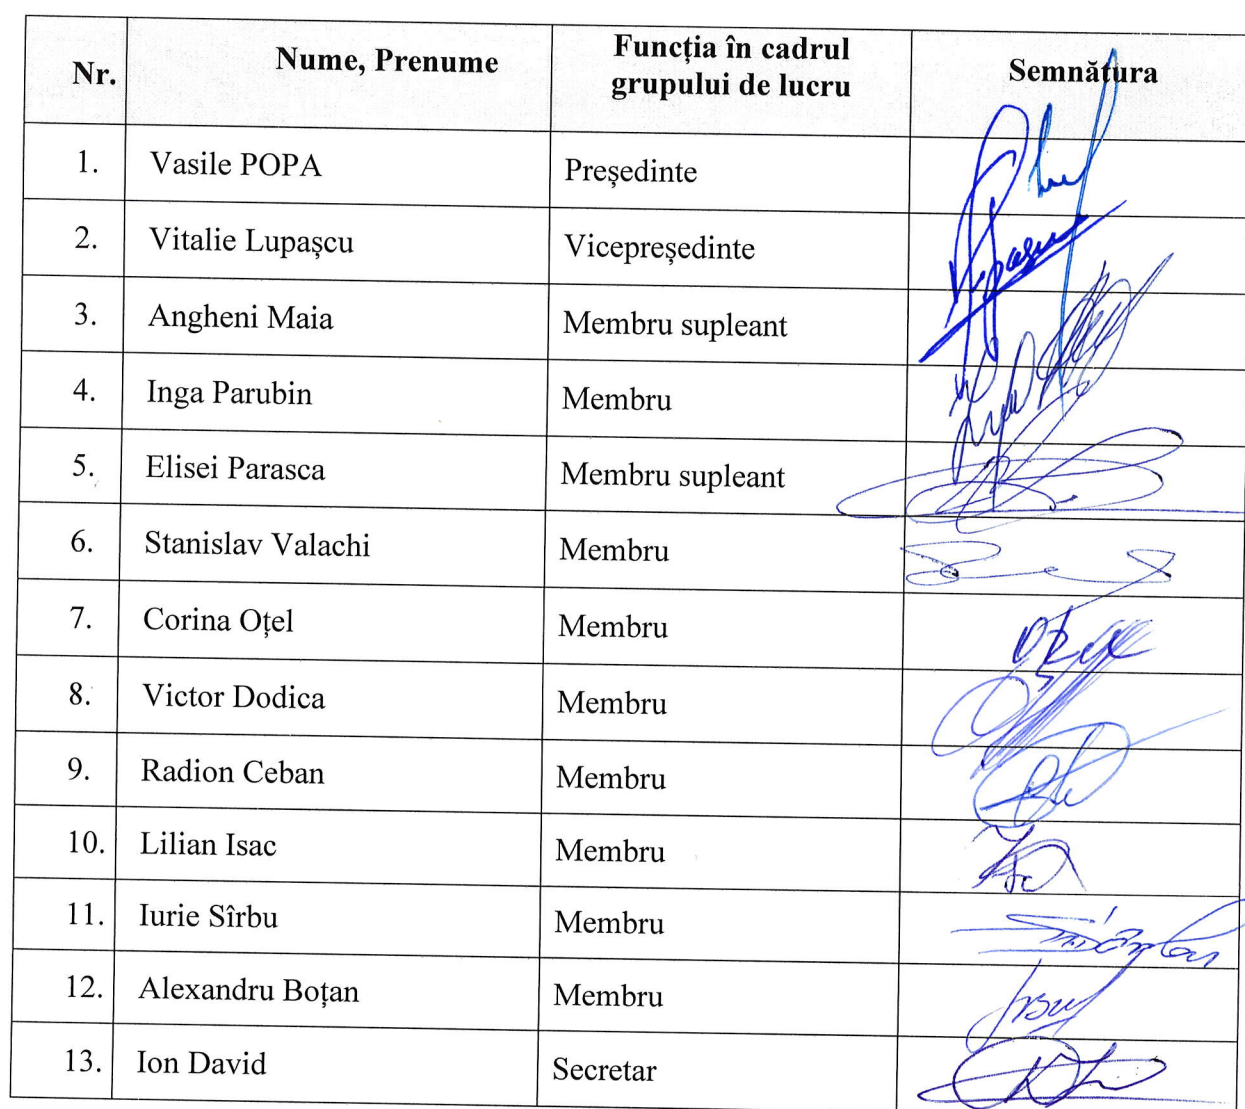 Nr. Nume, Prenume Funcția în cadrul grupului de lucru Semnătura
1. Vasile POPA Președinte
2. Vitalie Lupașcu Vicepreședinte
3. Angheni Maia Membru supleant
4. Inga Parubin Membru
5. Elisei Parasca Membru supleant
6. Stanislav Valachi Membru
7. Corina Oțel Membru
8. Victor Dodica Membru
9. Radion Ceban Membru
10. Lilian Isac Membru
11. Iurie Sîrbu Membru
12. Alexandru Boțan Membru
13. Ion David Secretar